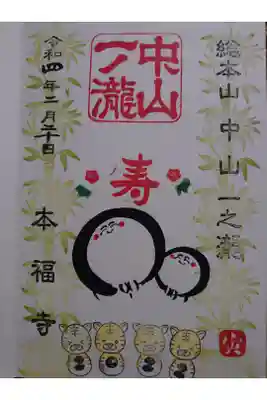 総本山 中山一之瀧
中山
一ノ瀧
寿
令和四年二月二十日
本福寺